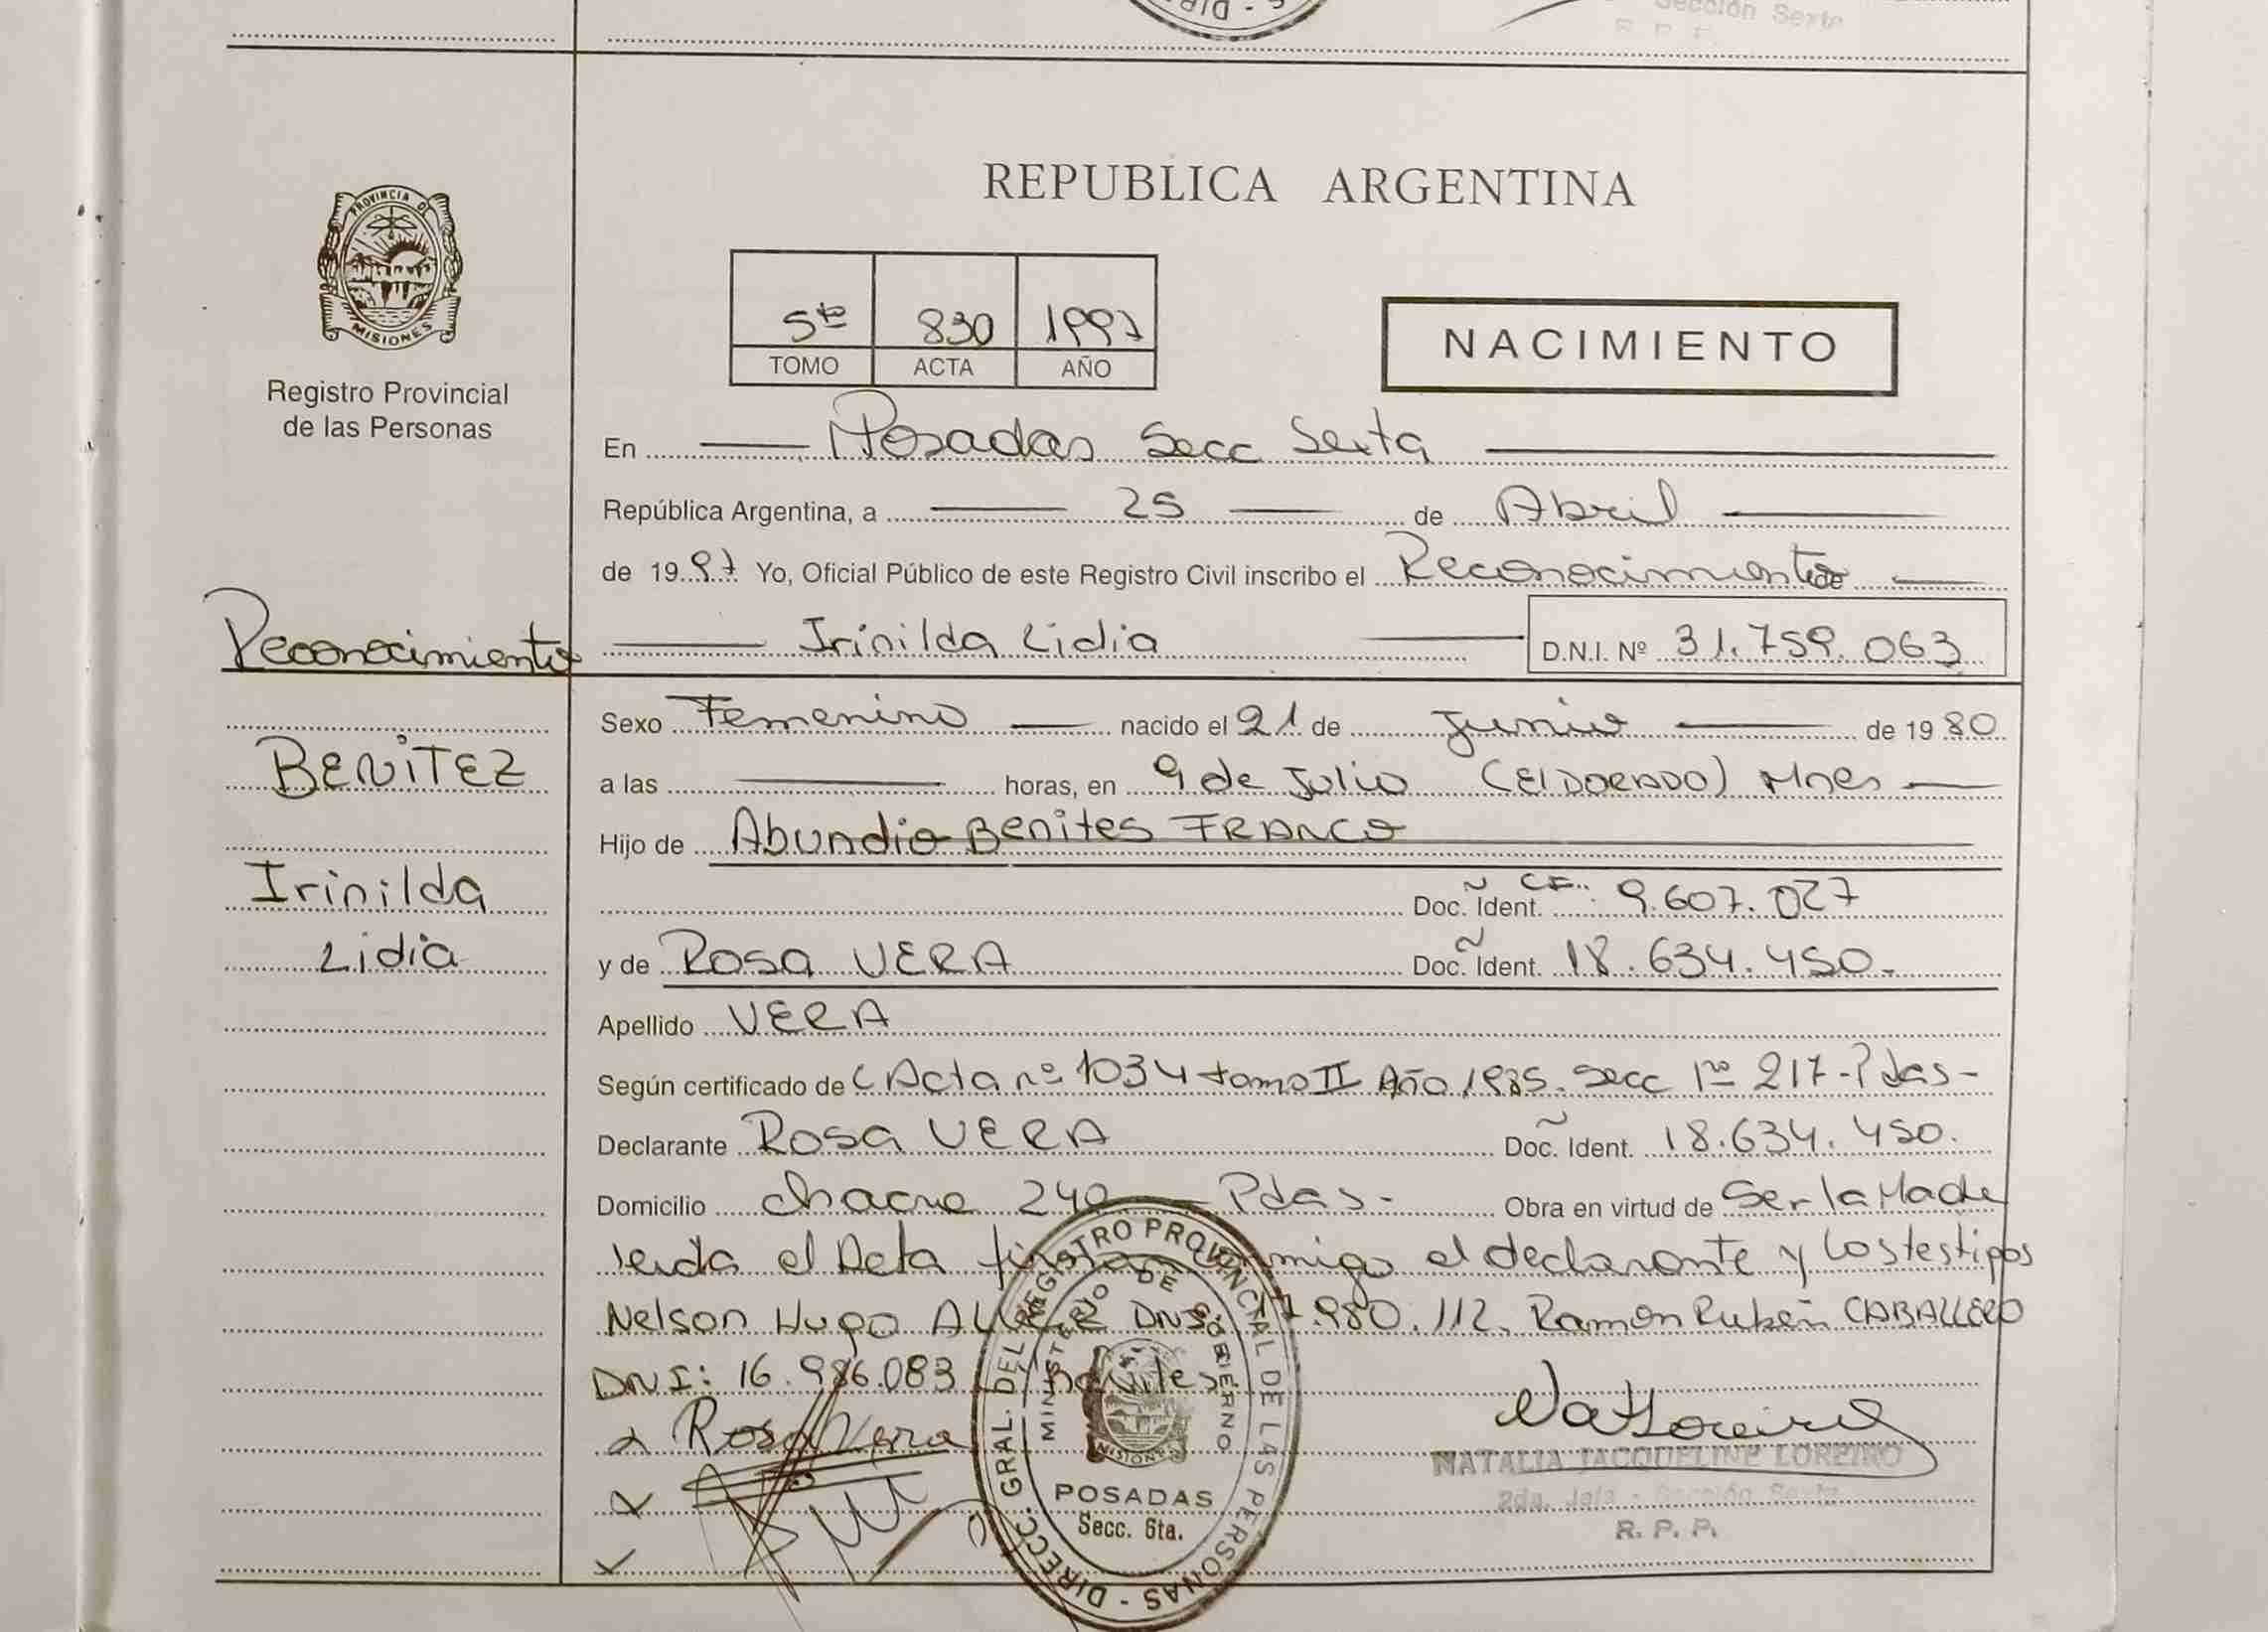 Sección Sexta
R. P. P.
PROVINCIA DE
MISIONES
Registro Provincial
de las Personas
REPUBLICA ARGENTINA
5to 830 1997
TOMO ACTA AÑO
NACIMIENTO
En Posadas Secc Sexta
República Argentina, a 25 de Abril
de 1997 Yo, Oficial Público de este Registro Civil inscribo el Reconocimiento de
Reconocimiento
Irinilda Lidia D.N.I. Nº 31.759.063
Sexo Femenino nacido el 21 de Junio de 1980
BENITEZ
a las horas, en 9 de Julio (ElDORADO) Mnes
Hijo de Abundio Benites FRANCO
Irinilda
Doc. Ident. CF: 9.607.027
Lidia
y de Rosa VERA Doc. Ident. 18.634.450.
Apellido VERA
Según certificado de Acta nº 1034 tomo II Año 1985. Secc 1ra 217-Pdas-
Declarante Rosa VERA Doc. Ident. 18.634.450.
Domicilio chacra 240 Pdas- Obra en virtud de Ser la Madre
leida el Acta firman conmigo el declarante y los testigos
Nelson Hugo DNI 17.980.112. Ramon Ruben CABALLERO
DNI: 16.986.083
Rosa Vera
NATALIA JACQUELINE LOREIRO
2da. Jefe - Sección Sexta
R. P. P.
DIRECC. GRAL. DEL REGISTRO PROVINCIAL DE LAS PERSONAS -
MINISTERIO DE GOBIERNO
MISIONES
POSADAS
Secc. 6ta.